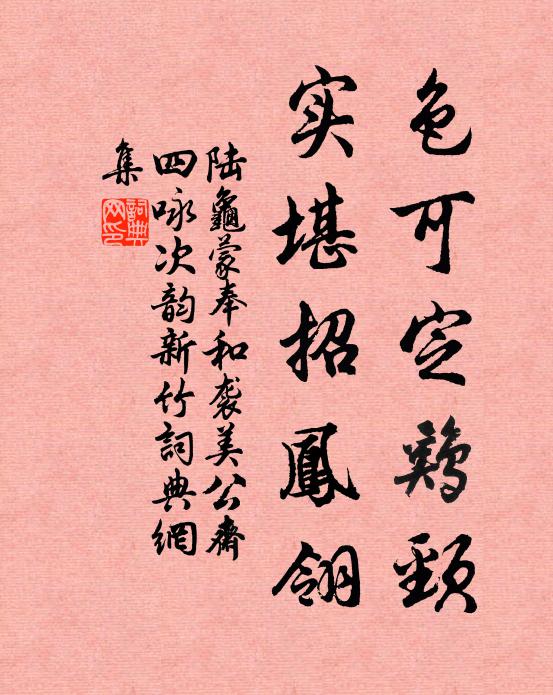 色可定鷄頸
实堪招鳳翎
陆龜蒙奉和袭美公齋
四咏次韵新竹詞典網
集
詞典
网印